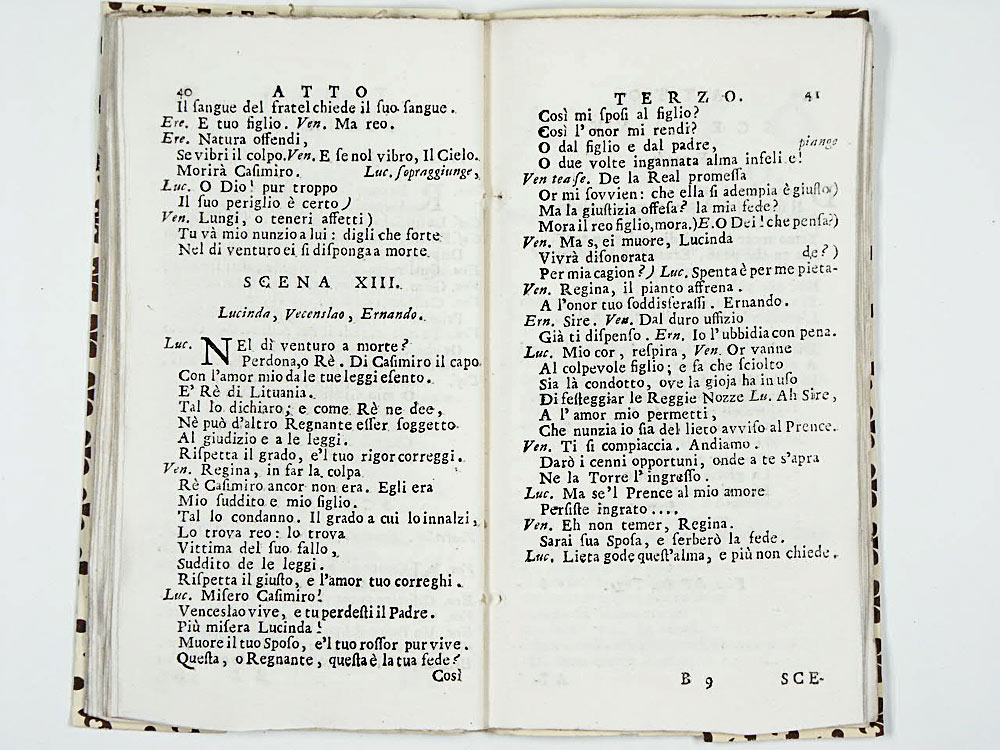 40 ATTO
Il ſangue del fratel chiede il ſuo ſangue.
Ere. E tuo figlio. Ven. Ma reo.
Ere. Natura offendi,
Se vibri il colpo. Ven. E ſe nol vibro, Il Cielo.
Morirà Caſimiro. Luc. ſopraggiunge,
Luc. O Dio! pur troppo
Il ſuo periglio è certo)
Ven. Lungi, o teneri affetti)
Tu và mio nunzio a lui: digli che forte
Nel dì venturo ei ſi diſponga a morte.
SCENA XIII.
Lucinda, Vecenslao, Ernando.
Luc. NEl dì venturo a morte?
Perdona, o Rè. Di Caſimiro il capo
Con l'amor mio da le tue leggi eſento.
E' Rè di Lituania.
Tal lo dichiaro; e come Rè ne dee,
Nè può d'altro Regnante eſſer ſoggetto
Al giudizio e a le leggi.
Riſpetta il grado, e'l tuo rigor correggi.
Ven. Regina, in far la colpa
Rè Caſimiro ancor non era. Egli era
Mio ſuddito e mio figlio.
Tal lo condanno. Il grado a cui lo innalzi,
Lo trova reo: lo trova
Vittima del ſuo fallo,
Suddito de le leggi.
Riſpetta il giuſto, e l'amor tuo correghi.
Luc. Miſero Caſimiro!
Venceslao vive, e tu perdeſti il Padre.
Più miſera Lucinda!
Muore il tuo Spoſo, e'l tuo roſſor pur vive.
Queſta, o Regnante, queſta è la tua fede?
Così
TERZO. 41
Così mi ſpoſi al figlio?
Così l'onor mi rendi?
O dal figlio e dal padre, piange
O due volte ingannata alma infeli e!
Ven tea ſe. De la Real promeſſa
Or mi ſovvien: che ella ſi adempia è giuſto)
Ma la giuſtizia offeſa? la mia fede?
Mora il reo figlio, mora.) E. O Dei! che penſa?)
Ven. Ma s, ei muore, Lucinda
Vivrà diſonorata de?)
Per mia cagion?) Luc. Spenta è per me pieta-
Ven. Regina, il pianto affrena.
A l'onor tuo ſoddisferaſſi. Ernando.
Ern. Sire. Ven. Dal duro uffizio
Già ti diſpenſo. Ern. Io l'ubbidia con pena.
Luc. Mio cor, reſpira, Ven. Or vanne
Al colpevole figlio; e fa che ſciolto
Sia là condotto, ove la gioja ha in uſo
Di feſteggiar le Reggie Nozze Lu. Ah Sire,
A l'amor mio permetti,
Che nunzio io ſia del lieto avviſo al Prence.
Ven. Ti ſi compiaccia. Andiamo.
Darò i cenni opportuni, onde a te s'apra
Ne la Torre l'ingreſſo.
Luc. Ma ſe'l Prence al mio amore
Perſiſte ingrato....
Ven. Eh non temer, Regina.
Sarai ſua Spoſa, e ſerberò la fede.
Luc. Lieta gode queſt'alma, e più non chiede.
B 9 SCE-